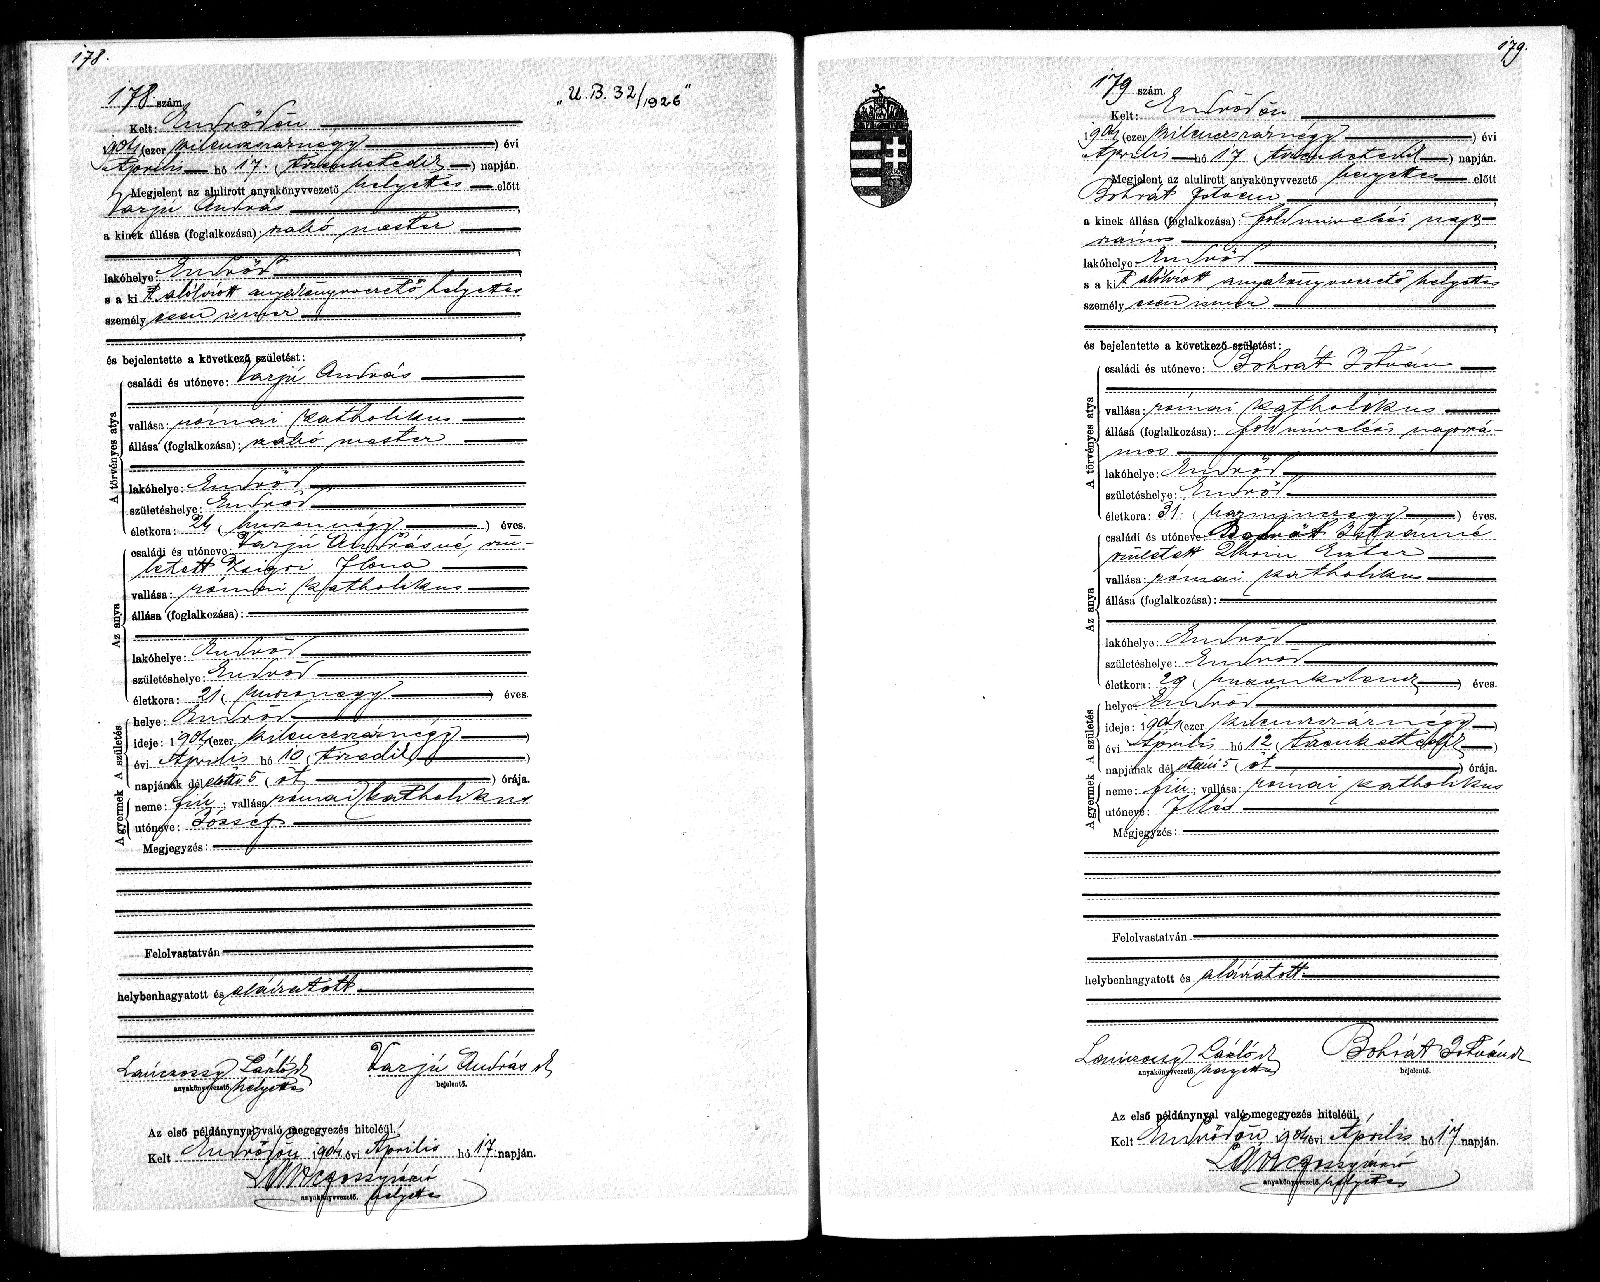 178.
178 szám.
„U. B. 32/1926"
Kelt: Endrődön
1904 (ezer kilencszáznégy) évi
Április hó 17. (tizenhetedik) napján.
Megjelent az alulirott anyakönyvvezető helyettes előtt
Varjú András
a kinek állása (foglalkozása): szabó mester
lakóhelye: Endrőd
s a ki t alólirott anyakönyvvezető helyettes
személy esen ismer
és bejelentette a következő születést:
A törvényes atya
családi és utóneve: Varjú András
vallása: római katholikus
állása (foglalkozása): szabó mester
lakóhelye: Endrőd
születéshelye: Endrőd
életkora: 24 (huszonnégy) éves.
Az anya
családi és utóneve: Varjú Andrásné, szü-
letett Ilona
vallása: római katholikus
állása (foglalkozása):
lakóhelye: Endrőd
születéshelye: Endrőd
életkora: 21 (huszonegy) éves.
A gyermek A születés
helye: Endrőd
ideje: 1904 (ezer kilencszáznégy)
évi Április hó 10 (tizedik)
napjának dél előtti 5 (öt) órája.
neme: fiú; vallása: római katholikus
utóneve: József
Megjegyzés:
Felolvastatván
helybenhagyatott és aláiratott
László h Varjú András
anyakönyvvezető helyettes bejelentő.
Az első példánynyal való megegyezés hiteléül,
Kelt Endrődön 1904 évi Április hó 17 napján.
anyakönyvvezető. helyettes
179.
179 szám.
Kelt: Endrődön
1904 (ezer kilencszáznégy) évi
Április hó 17 (tizenhetedik) napján.
Megjelent az alulirott anyakönyvvezető helyettes előtt
Bohrát István
a kinek állása (foglalkozása): földmivelési nap-
számos
lakóhelye: Endrőd
s a ki t alólirott anyakönyvvezető helyettes
személy esen ismer
és bejelentette a következő születést:
A törvényes atya
családi és utóneve: Bohrát István
vallása: római katholikus
állása (foglalkozása): földmivelési napszá-
mos
lakóhelye: Endrőd
születéshelye: Endrőd
életkora: 31 (harminczegy) éves.
Az anya
családi és utóneve: Bohrát Istvánné
született Eszter
vallása: római katholikus
állása (foglalkozása):
lakóhelye: Endrőd
születéshelye: Endrőd
életkora: 29 (huszonkilencz) éves.
A gyermek A születés
helye: Endrőd
ideje: 1904 (ezer kilencszáznégy)
évi Április hó 12 (tizenkettedik)
napjának dél utáni 5 (öt) órája.
neme: fiú; vallása: római katholikus
utóneve: Illés
Megjegyzés:
Felolvastatván
helybenhagyatott és aláiratott
László Bohrát István
anyakönyvvezető. helyettes bejelentő.
Az első példánynyal való megegyezés hiteléül,
Kelt Endrődön 1904 évi Április hó 17 napján.
anyakönyvvezető. helyettes